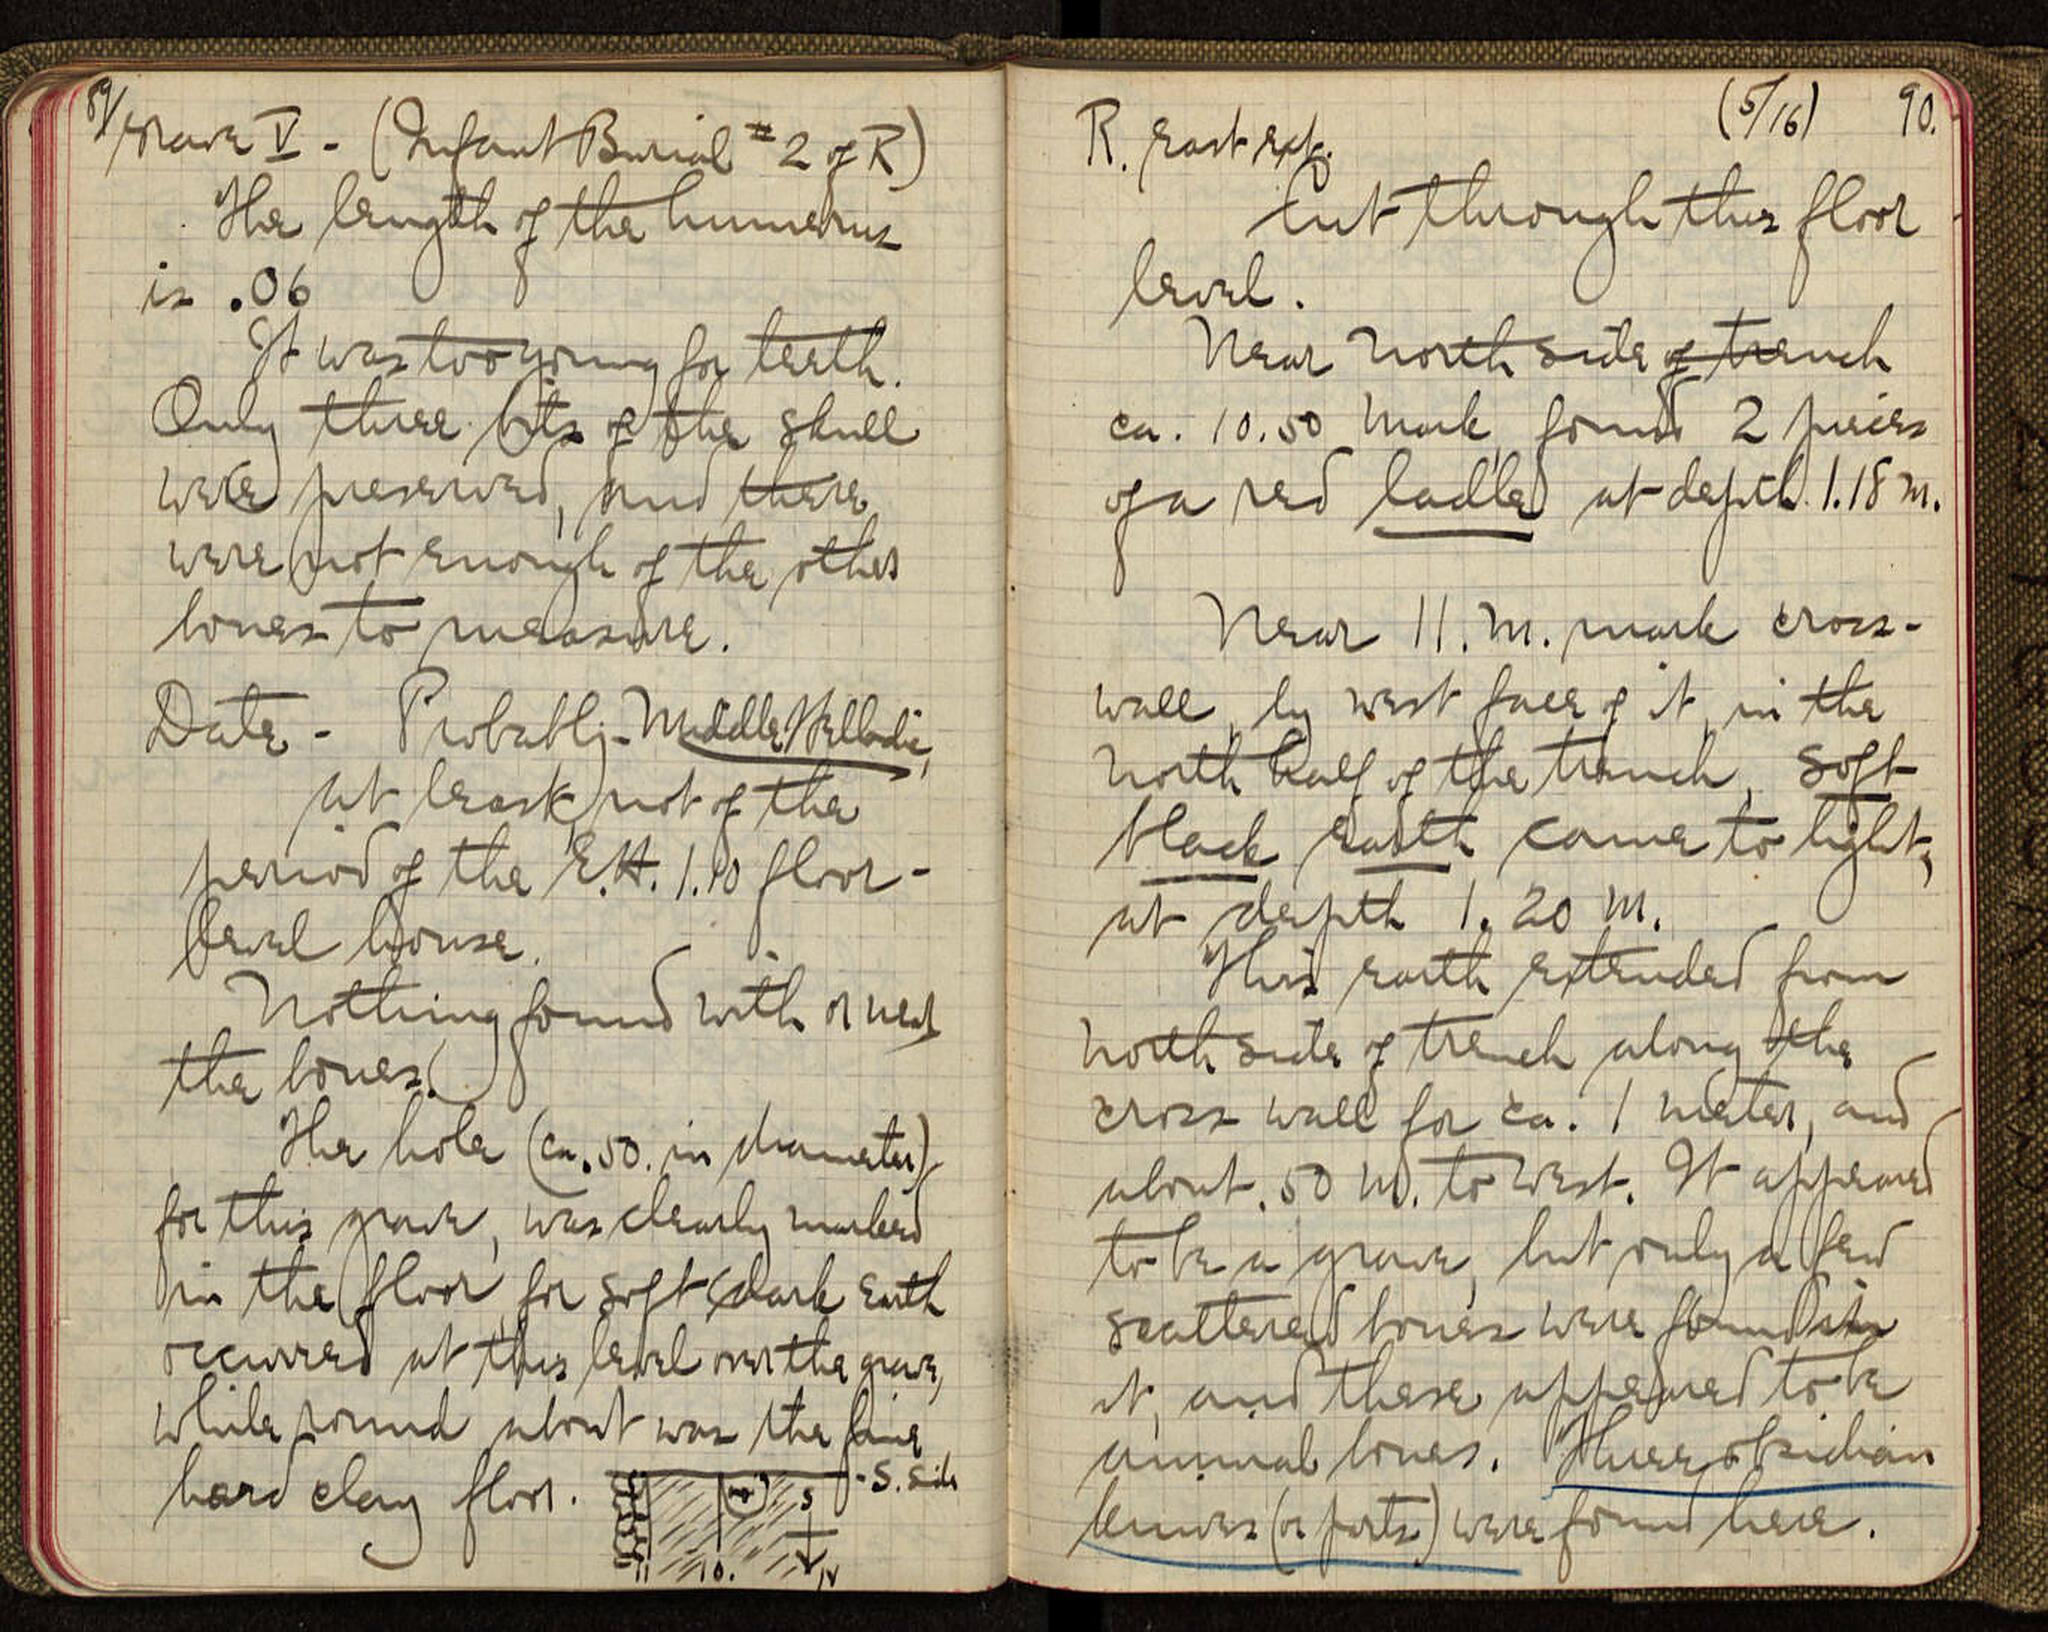 89/
Grave V - (Infant Burial #2 of R)
The length of the humerus
is .06
It was too young for teeth.
Only three bits of the skull
were preserved, and there
were not enough of the other
bones to measure.
Date - Probably Middle Helladic,
at least, not of the
period of the E.H. 1.10 floor-
level house.
Nothing found with or near
the bones.
The hole (ca. .50. in diameter)
for this grave, was clearly marked
in the floor, for soft dark earth
occurred at this level over the grave,
while round about was the fine
hard clay floor.
- S. Side
S
11 10. N
(5/16) 90.
R. east ext.
Cut through this floor
level.
Near north side of trench
ca. 10.50 mark, found 2 pieces
of a red ladle at depth 1.18 m.
Near 11. m. mark cross-
wall, by west face of it, in the
north half of the trench, soft
black earth came to light,
at depth 1.20 m.
This earth extended from
north side of trench along the
cross wall for ca. 1 meter, and
about .50 m. to west. It appeared
to be a grave, but only a few
scattered bones were found in
it, and these appeared to be
animal bones. Three obsidian
knives (or parts) were found here.